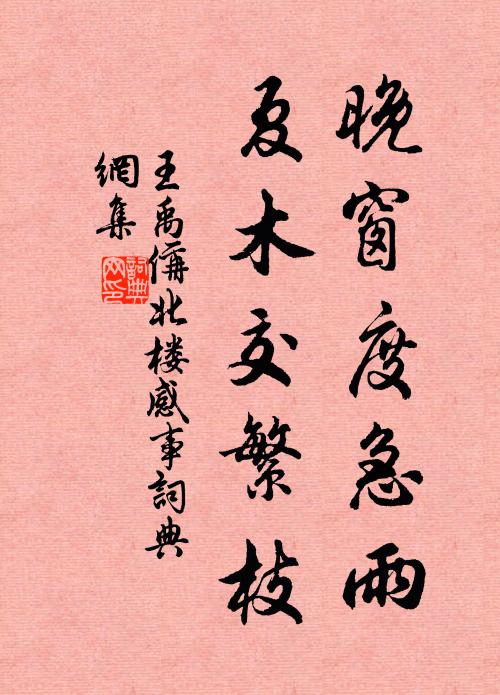 晚窗度急雨
夏木交繁枝
王禹偁北楼感事詞典
網集
詞典网印